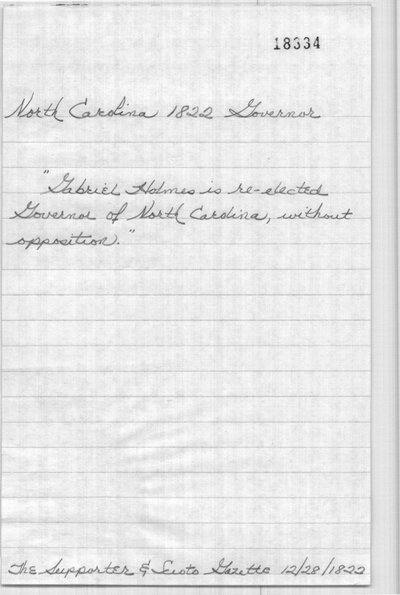 18334
North Carolina 1822 Governor
"Gabriel Holmes is re-elected
Governor of North Carolina, without
opposition."
The Supporter & Scioto Gazette 12/28/1822